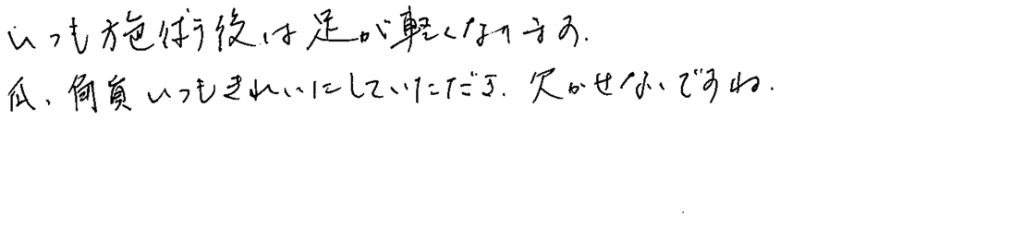 いつも施術後は足が軽くなります.
爪、角質いつもきれいにしていただき. 欠かせないですね.